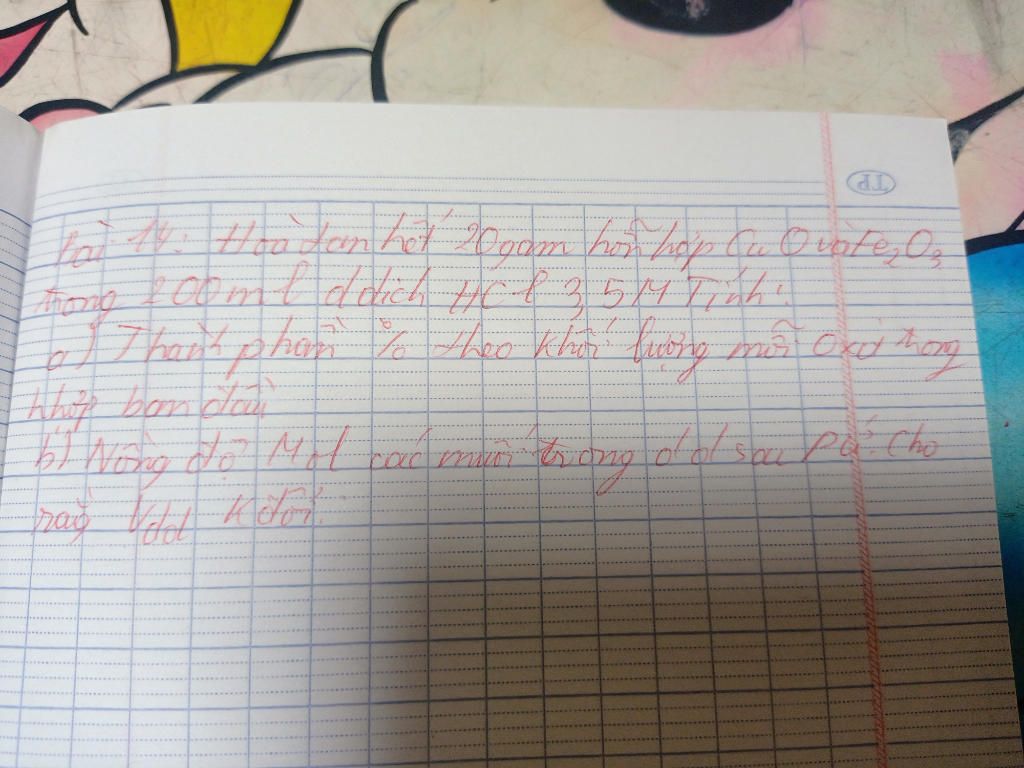 TP
Bài 14: Hoà tan hết 20 gam hỗn hợp CuO và Fe2O3
trong 200ml d dịch HCl 3,5M Tính:
a) Thành phần % theo khối lượng mỗi oxit trong
hhợp ban đầu
b) Nồng độ Mol các muối trong dd sau pứ. Cho
rằg Vdd k đổi.